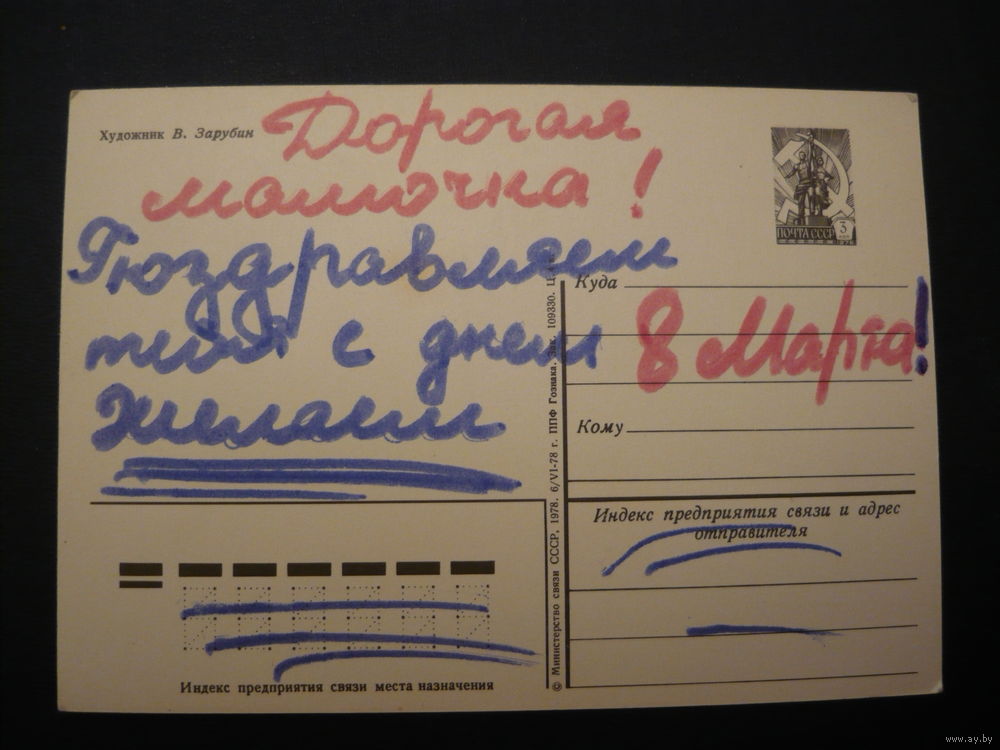 Художник В. Зарубин
Дорогая
мамочка!
Поздравляем
тебя с днем 8 Марта!
Желаем
ПОЧТА СССР 3 коп
Куда
Кому
Индекс предприятия связи и адрес
отправителя
Индекс предприятия связи места назначения
© Министерство связи СССР, 1978. 6/VI-78 г. ППФ Гознака. Зак. 109330. Ц.
www.ay.by